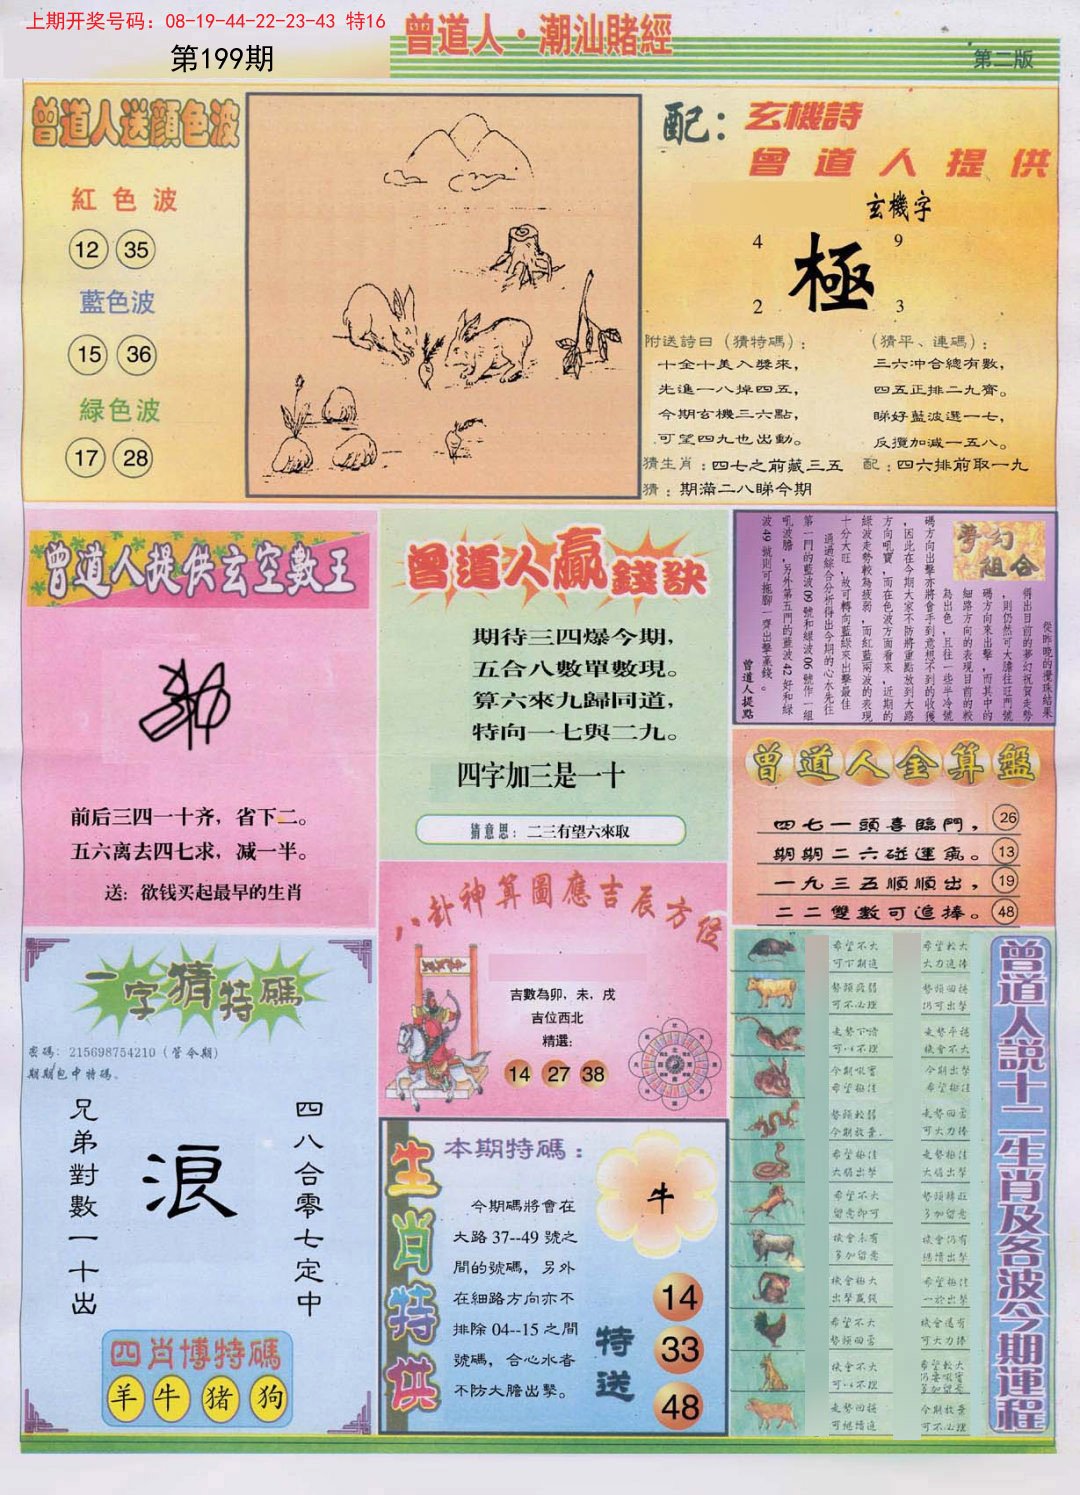 上期开奖号码：08-19-44-22-23-43 特16
第199期
曾道人·潮汕賭經
第二版
曾道人送顔色波
紅色波
12 35
藍色波
15 36
緑色波
17 28
配：玄機詩
曾道人提供
玄機字
4 9
極
2 3
附送詩曰（猜特碼）：
十全十美入獎來，
先進一八掉四五，
今期玄機三六點，
可望四九也出動。
（猜平、連碼）：
三六冲合總有數，
四五正排二九齊。
睇好藍波選一七，
反攬加减一五八。
猜生肖：四七之前藏三五
配：四六排前取一九
猜：期滿二八睇今期
曾道人提供玄空數王
前后三四一十齐，省下二。
五六离去四七求，减一半。
送：欲钱买起最早的生肖
曾道人贏錢訣
期待三四爆今期，
五合八數單數現。
算六來九歸同道，
特向一七與二九。
四字加三是一十
猜意思：二三有望六來取
夢幻組合
從昨晚的攪珠結果
得出目前的夢幻祝賀走勢
，則仍然可大膽往旺門號
碼方向來出擊，而其中的
細路方向的表現目前的較
為出色，且往一些半冷號
碼方向出擊亦將會手到意想不到的收獲
，因此在今期大家不防將重點放到大路
方向吼寶，而在色波方面看來，近期的
緑波走勢較為疲弱，而紅藍兩波的表現
十分大旺，故可轉向藍緑來出擊最佳
通過綜合分析得出今期的心水先往
第一門的藍波09號和緑波06號作一組
吼波膽，另外第五門的藍波42好和緑
波49號則可拖脚一齊出擊贏錢。
曾道人提點
曾道人全算盤
四七一頭喜臨門， 26
期期二六碰運氣。 13
一九三五順順出， 19
二二雙數可追捧。 48
一字猜特碼
密碼：215698754210（管今期）
期期包中特碼。
兄弟對數一十出
浪
四八合零七定中
四肖博特碼
羊 牛 猪 狗
八卦神算圖應吉辰方位
吉數為卯，未，戌
吉位西北
精選：
14 27 38
生肖特供
本期特碼：
今期碼將會在
大路37--49號之
間的號碼，另外
在細路方向亦不
排除04--15之間
號碼，合心水者
不防大膽出擊。
牛
特送
14
33
48
曾道人説十二生肖及各波今期運程
希望不大
可下期追
希望較大
大力追捧
勢頭疲弱
可不必理
勢頭回揚
仍可出擊
走勢下滑
可以不理
走勢平穩
機會不大
今期吼實
希望極佳
今期出擊
希望極佳
勢頭較弱
今期放棄
走勢回靈
可大力捧
希望極佳
大膽出擊
走勢極佳
大膽出擊
希望不大
留意即可
勢頭轉旺
多加留意
機會未有
多加留意
機會仍有
繼續出擊
機會極大
出擊贏錢
希望極佳
一於出擊
希望不大
勢頭回靈
機會還有
可大力捧
機會不大
可以不理
希望較大
仍要吼實
多加留意
走勢回揚
可繼續追
今期放棄
可不必理